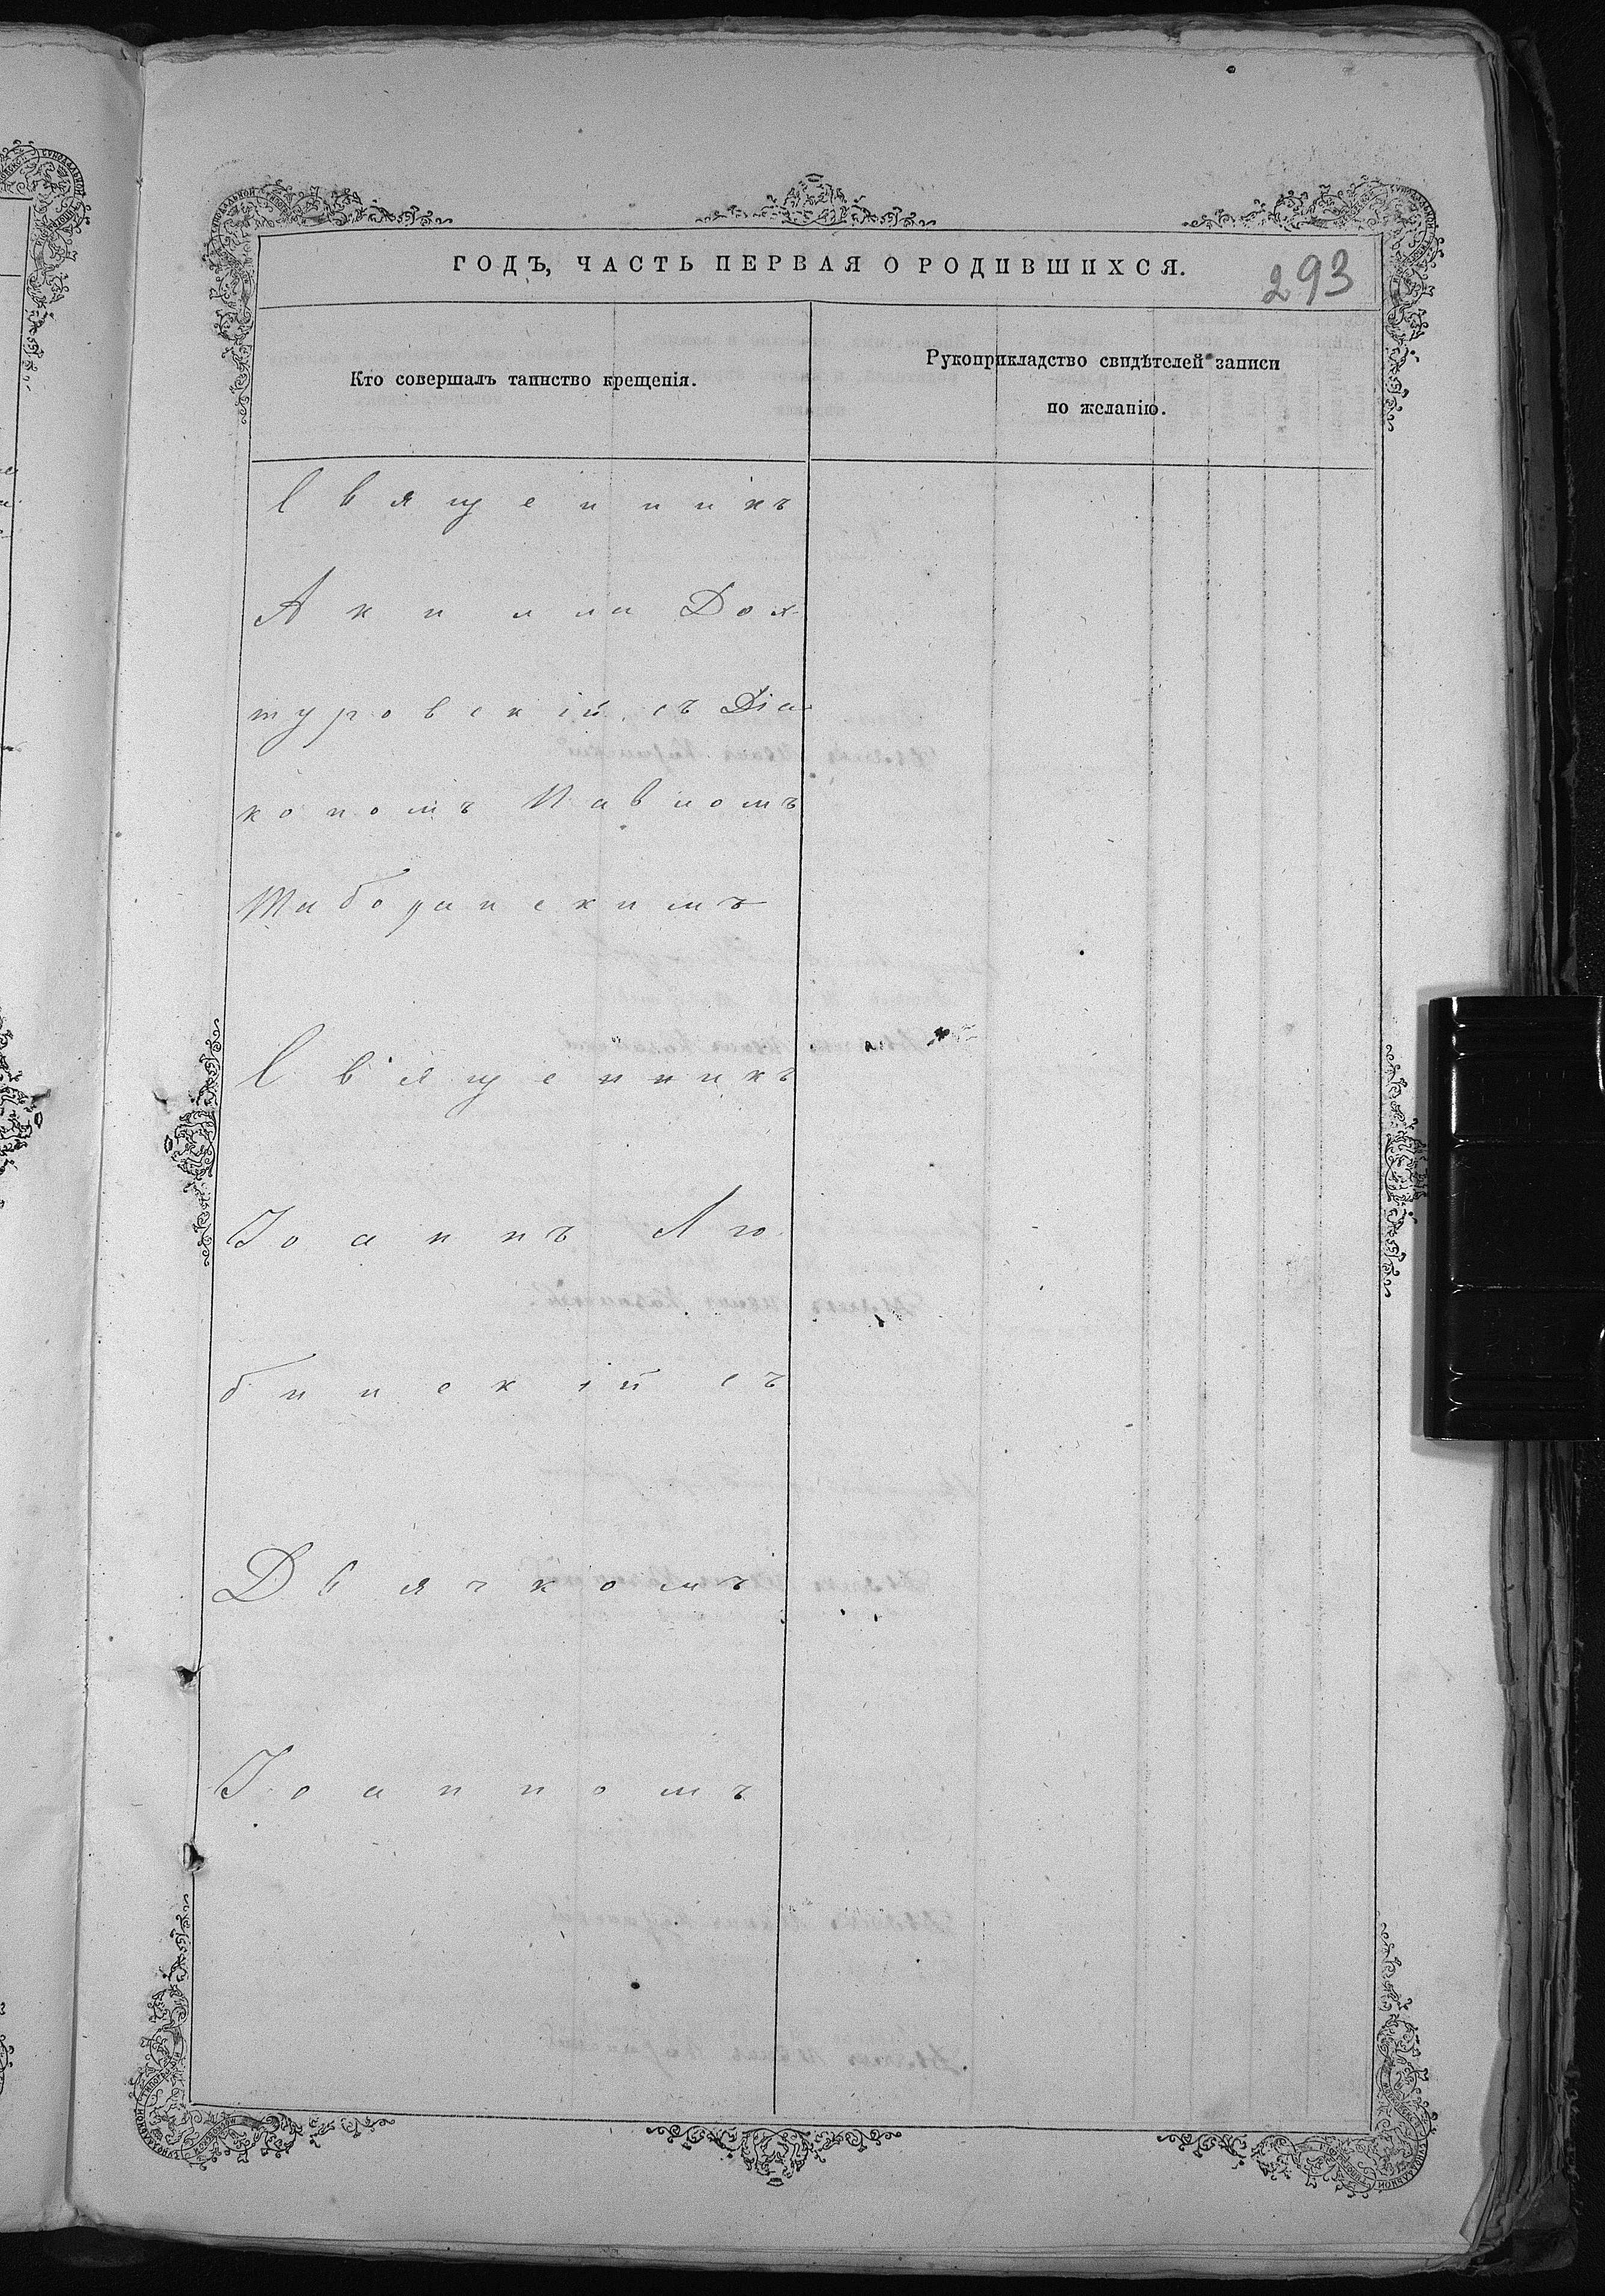 ГОДЪ, ЧАСТЬ ПЕРВАЯ О РОДИВШИХСЯ.
293
Кто совершалъ таинство крещенія.
Рукоприкладство свидѣтелей записи
по желанію.
Священникъ
Акила Дох-
туровскій съ Діа-
кономъ Павломъ
Священникъ
Іоаннъ Лю
бинскій съ
Дьячкомъ
Іоанномъ